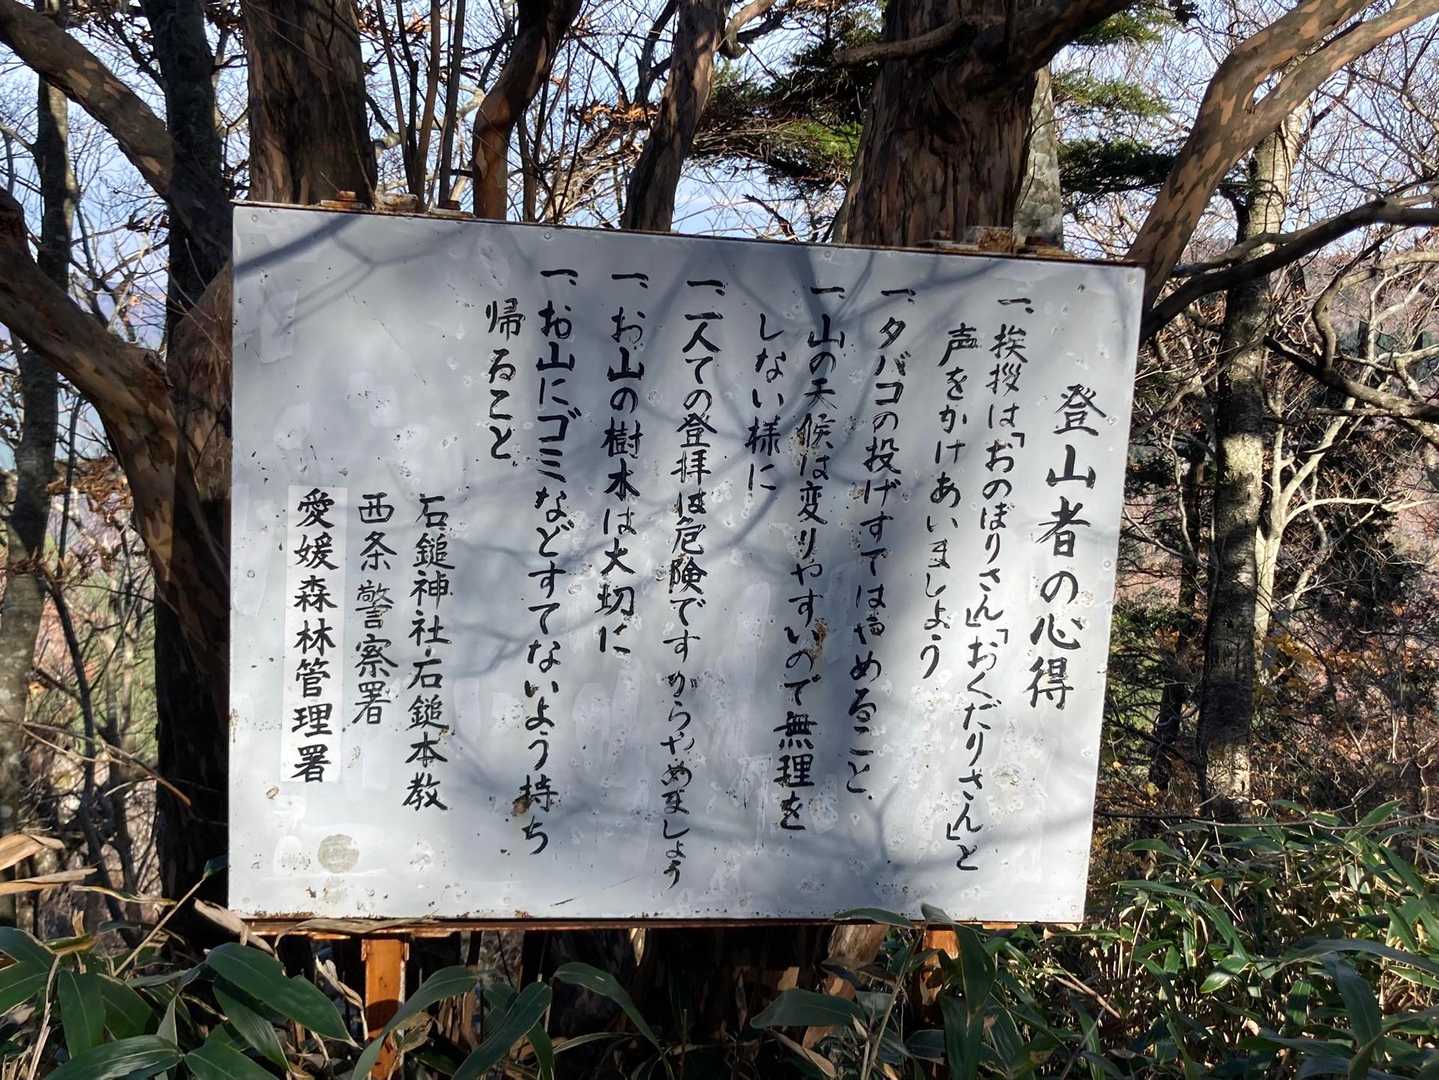 登山者の心得
一、挨拶は「おのぼりさん」「おくだりさん」と
声をかけあいましょう
一、タバコの投げすてはやめること、
一、山の天候は変りやすいので無理を
しない様に
一、一人ての登拝は危険ですからやめましょう
一、お山の樹木は大切に
一、お山にゴミなどすてないよう持ち
帰ること、
石鎚神社・石鎚本教
西条警察署
愛媛森林管理署